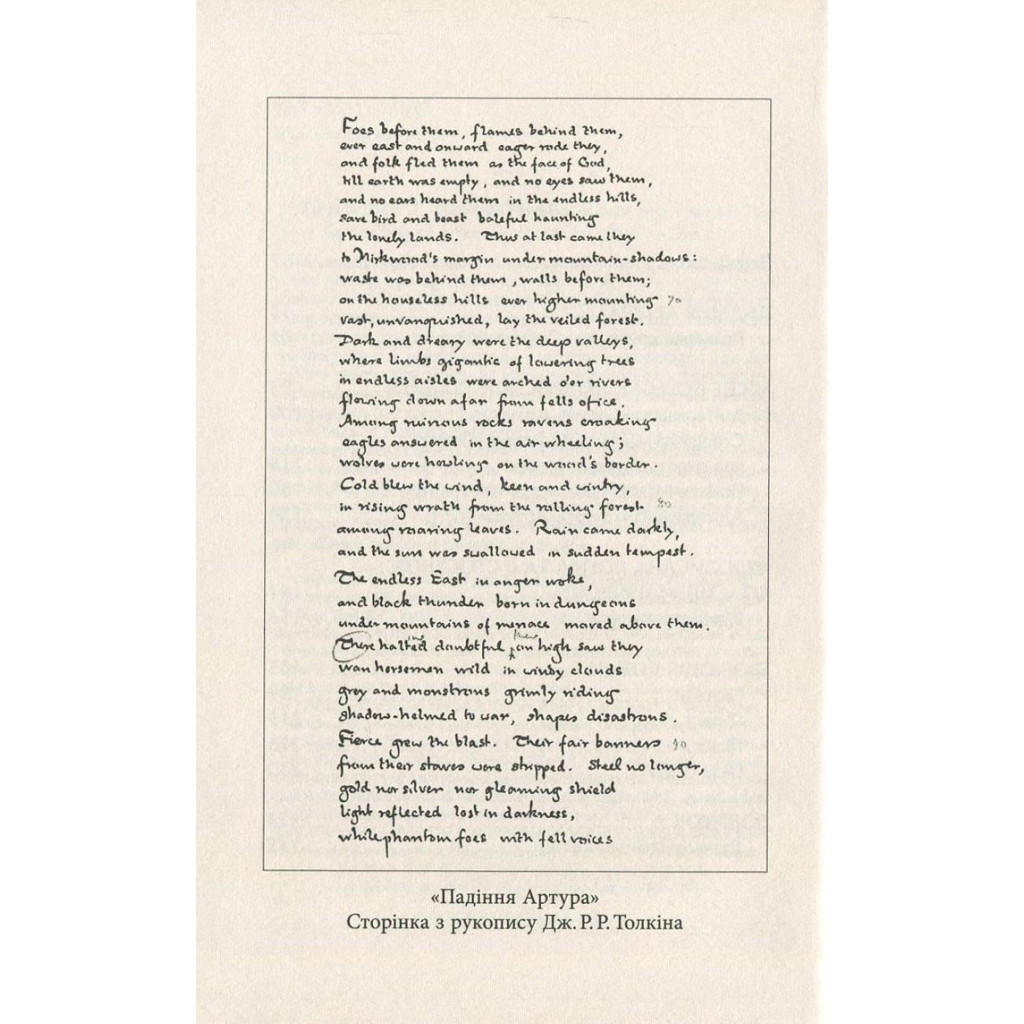 Foes before them, flames behind them,
ever east and onward eager rode they,
and folk fled them as the face of God,
till earth was empty, and no eyes saw them,
and no ears heard them in the endless hills,
save bird and beast baleful haunting
the lonely lands. Thus at last came they
to Mirkwood's margin under mountain-shadows:
waste was behind them, walls before them;
on the houseless hills ever higher mounting 70
vast, unvanquished, lay the veiled forest.
Dark and dreary were the deep valleys,
where limbs gigantic of lowering trees
in endless aisles were arched o'er rivers
flowing down afar from fells of ice.
Among ruinous rocks ravens croaking
eagles answered in the air wheeling;
wolves were howling on the wood's border.
Cold blew the wind, keen and wintry,
in rising wrath from the rolling forest 80
among roaring leaves. Rain came darkly,
and the sun was swallowed in sudden tempest.
The endless East in anger woke,
and black thunder born in dungeons
under mountains of menace moved above them.
There halted doubtful on high saw they
wan horsemen wild in windy clouds
grey and monstrous grimly riding
shadow-helmed to war, shapes disastrous.
Fierce grew the blast. Their fair banners 90
from their staves were stripped. Steel no longer,
gold nor silver nor gleaming shield
light reflected lost in darkness,
while phantom foes with fell voices
«Падіння Артура»
Сторінка з рукопису Дж. Р. Р. Толкіна